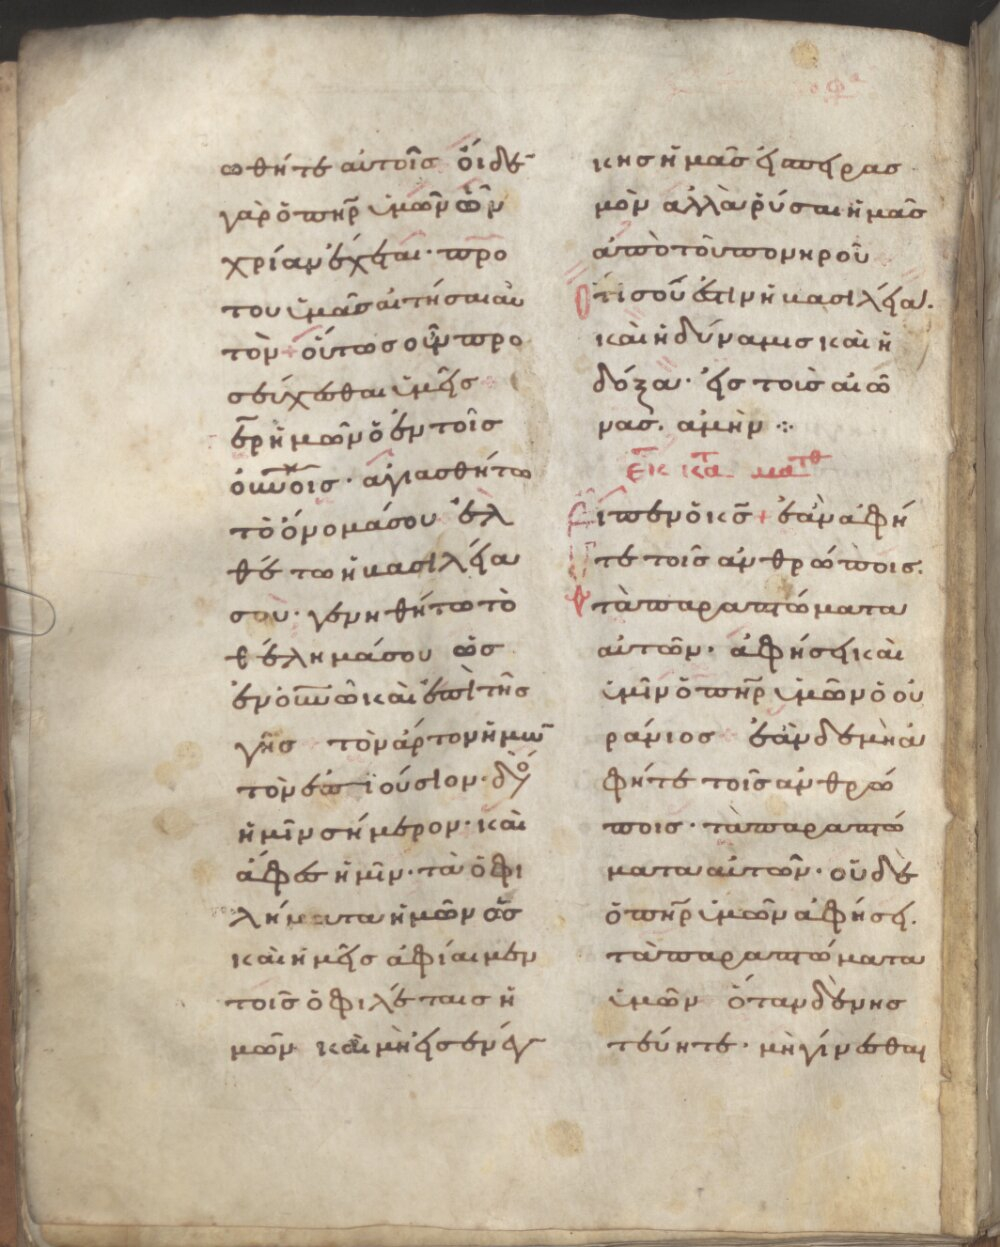 ωθήτε αυτοῖς· ὅιδε
γὰρ ὁ πηρ ϊμῶν ὧν
χρίαν ἔχεται· προ
του ϊμᾶς αιτήσαι αυ
τὸν + ὅυτως οὖν προ
σεύχεσθαι ϊμεῖς
περ ἡμῶν ὁ ἐν τοῖς
ὀυνοις· ἁγιασθήτω
τὸ ὄνομά σου ἐλ
θέτω ἡ βασιλεία
σου· γενηθήτω τὸ
θέλημά σου ὡς
ἐν ουνω καὶ ἐπὶ τῆς
γῆς τὸν άρτον ἡμῶ
τὸν ἐπιούσιον· δὸ
ἡμῖν σήμερον· καὶ
ἄφες ἡμῖν· τὰ ὀφι
λήματα ἡμῶν ὡς
καὶ ἡμεῖς ἀφίαιμεν
τοῖς ὀφιλέταις ἡ
μῶν καὶ μὴ εἰσενέγ
κης ἡμᾶς εἰς πειρας
μὸν ἀλλὰ ῥύσαι ἡμᾶς
ἀπὸ τοῦ πονηροῦ
ὅτι σοῦ ἐστὶν ἡ βασιλεία·
καὶ ἡ δύναμις καὶ ἡ
δόξα· εἰς τοὶς αιῶ
νας. ἀμὴν ⁘
ἐκ κτα ματθ
Εἶπεν ὁ κς + ἐὰν ἀφή
τε τοῖς ανθρώποις.
τὰ παραπτώματα
αὐτῶν· ἀφήσει καὶ
ϊμῖν ὁ πηρ ϊμῶν ὁ ου
ράνιος ἐὰν δε μὴ ἀ
φήτε τοῖς ανθρώ
ποις· τὰ παραπτώ
ματα αὐτῶν· οὐδὲ
ὁ πηρ ϊμῶν ἀφήσει.
τὰ παραπτώματα
ϊμῶν ὅταν δὲ νης
τεύητε· μὴ γίνεσθαι